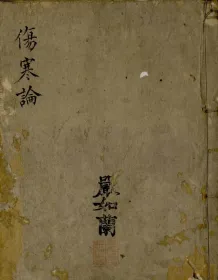 傷寒論
如蘭